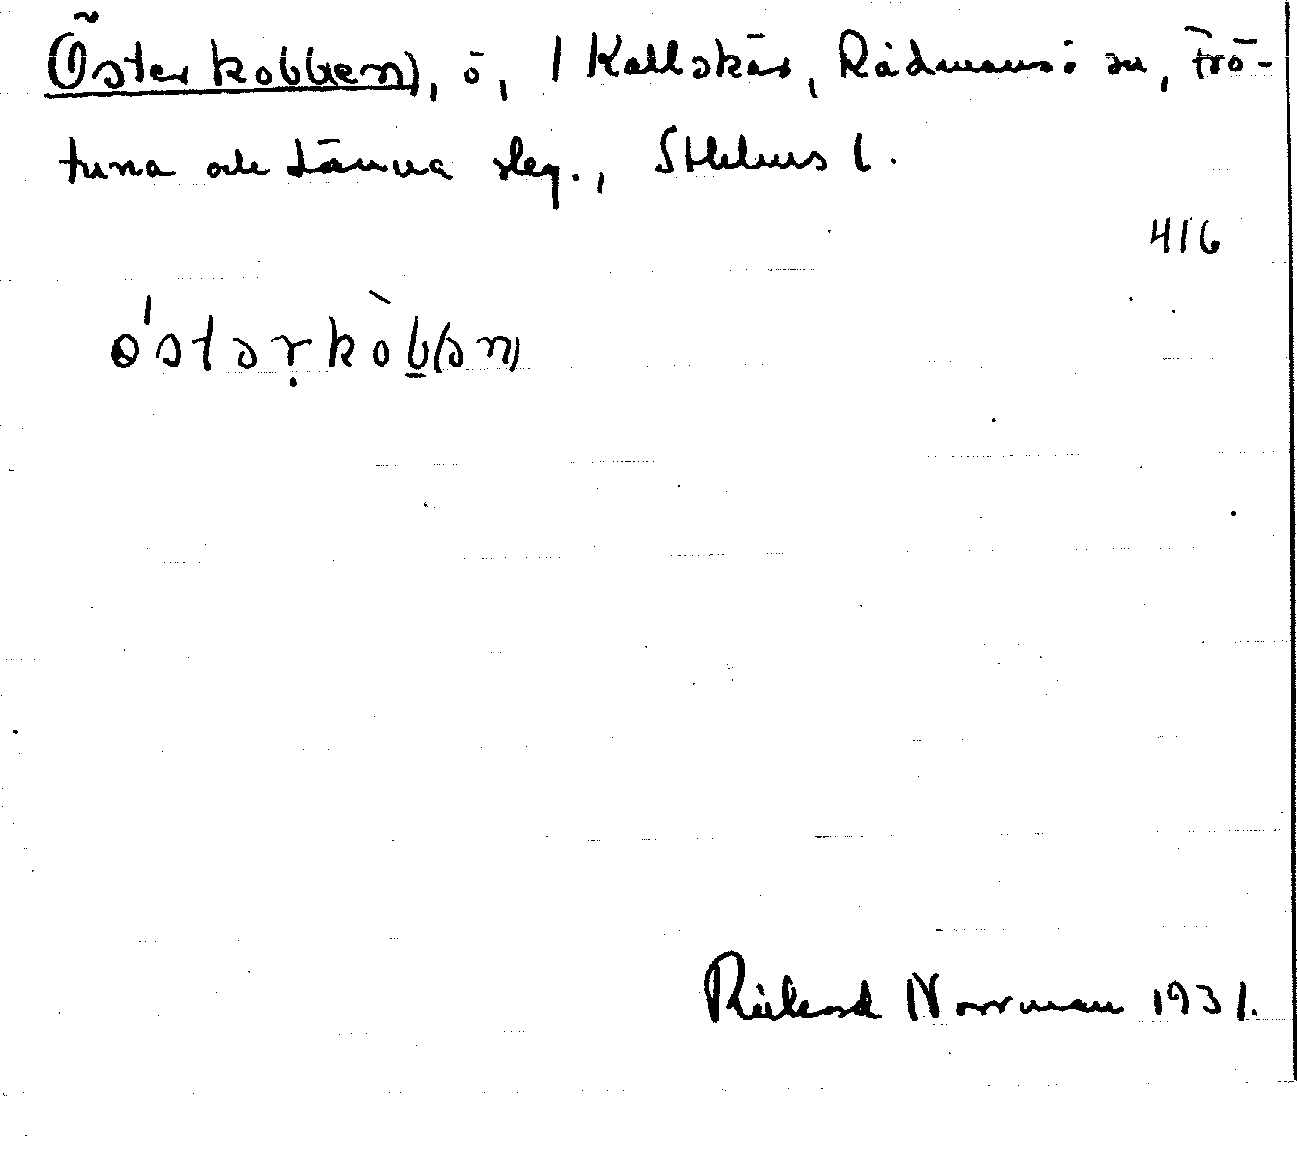 Österkobb(en), ö, / Kallskär, Rådmansö sn, Frö-
tuna och Länna slg., Sthlms l.
416
östərkòb(ən)
Rickard Norrman 1931.